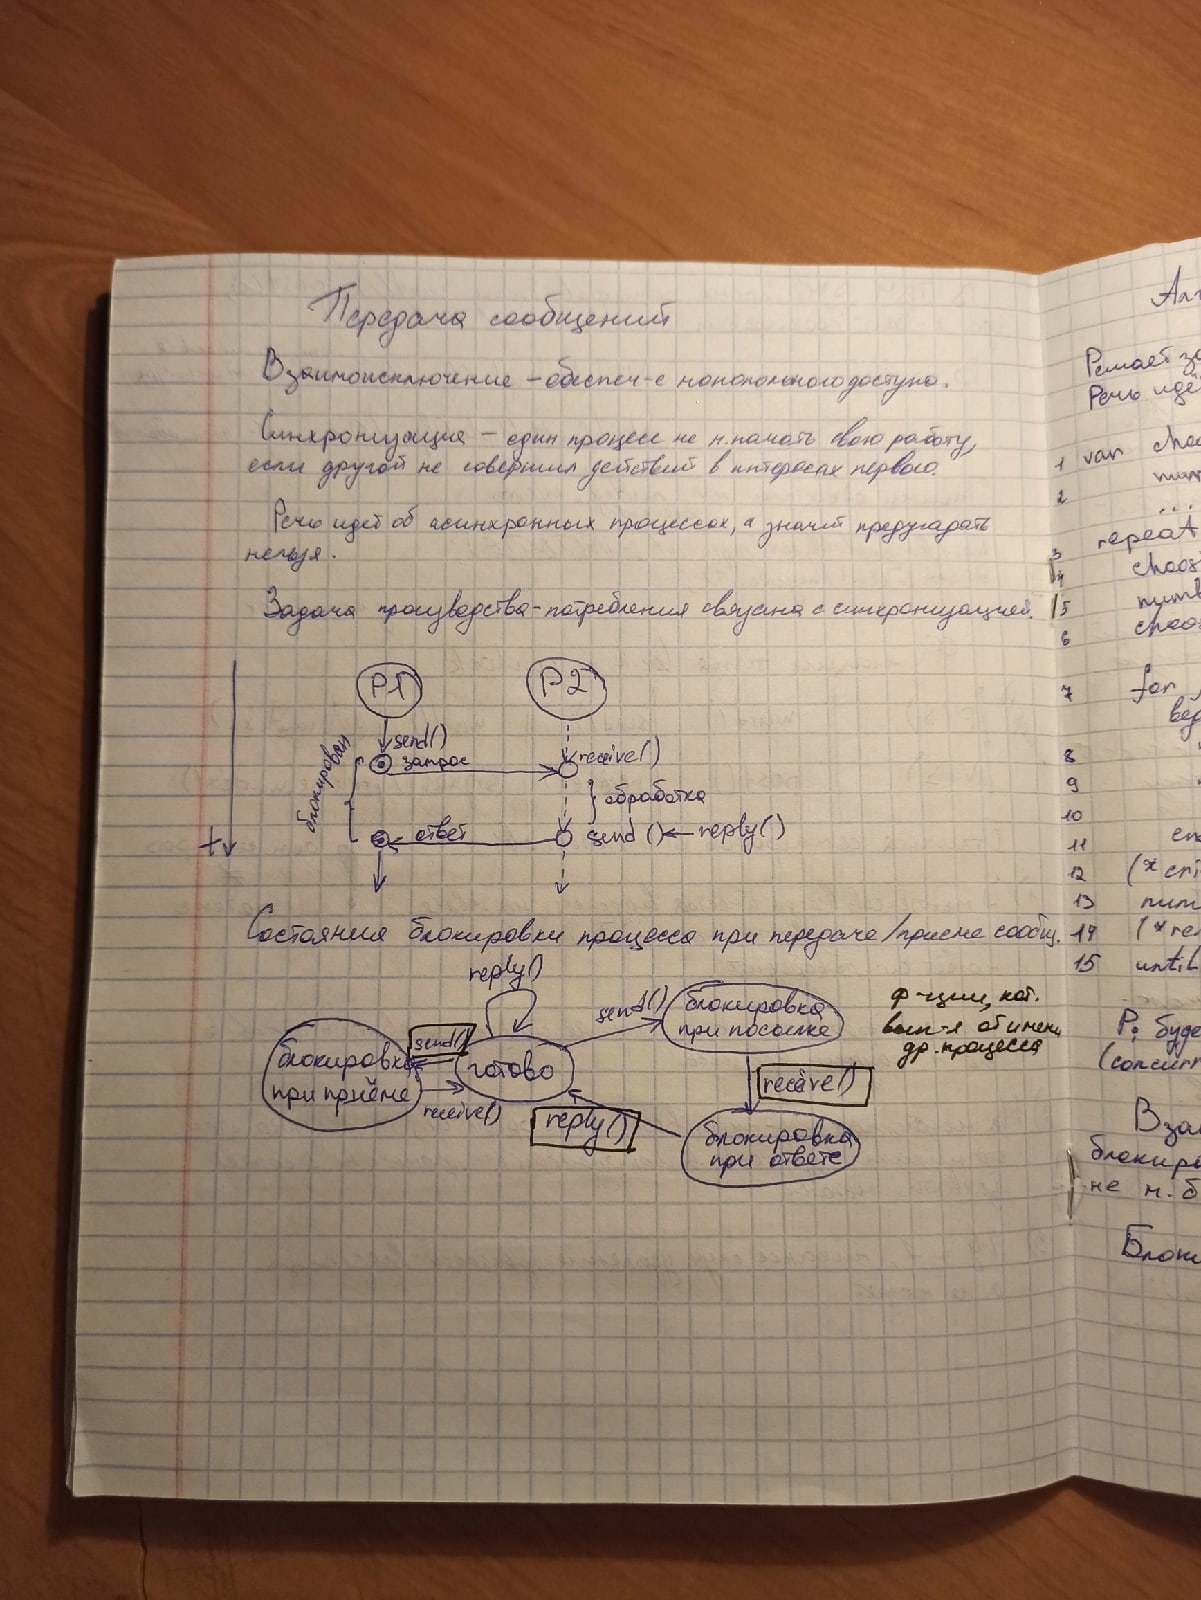 Передача сообщений
Взаимоисключение – обеспеч-е монопольного доступа.
Синхронизация – один процесс не м. начать свою работу,
если другой не совершил действий в интересах первого.
Речь идёт об асинхронных процессах, а значит предугадать
нельзя.
Задача производства-потребления связана с синхронизацией.
P1 P2
send()
запрос receive()
блокирован
обработка
ответ send() ← reply()
t
Состояния блокировки процесса при передаче/приеме сообщ.
reply()
send()
блокировка
при посылке
ф-ции, кот.
вып-я от имени
др. процесса
send()
блокировка
при приёме
готово
receive()
receive()
reply()
блокировка
при ответе
Решает
Речь идё
1 var
2
...
3 repeat
4
5
6
7 for
8
9
10
11
12 (* cri
13
14 (*
15 until
Pi буде
(concurr
Вза
блокиро
не м. б